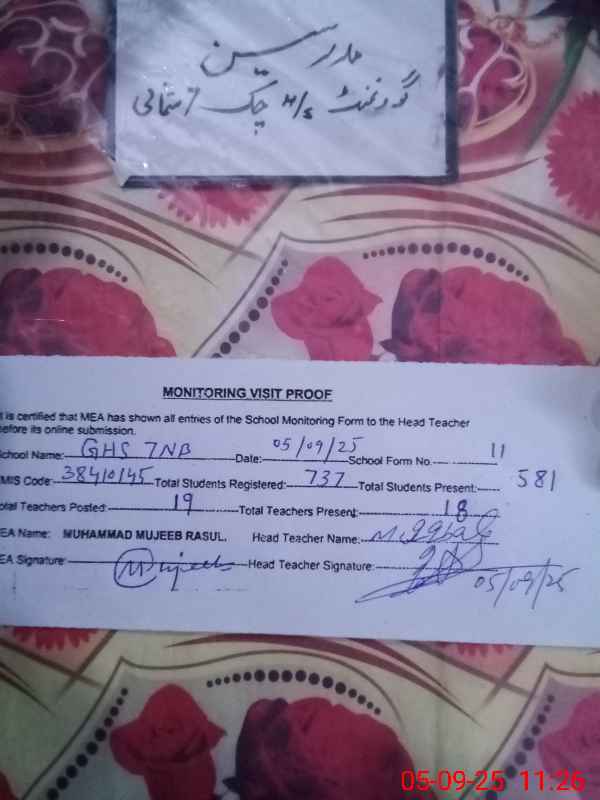 مدرسین
گورنمنٹ H/S چک 7 شمالی
MONITORING VISIT PROOF
is certified that MEA has shown all entries of the School Monitoring Form to the Head Teacher
before its online submission.
School Name: GHS 7NB Date: 05/09/25 School Form No. 11
EMIS Code: 38410145 Total Students Registered: 737 Total Students Present: 581
Total Teachers Posted: 19 Total Teachers Present: 18
MEA Name: MUHAMMAD MUJEEB RASUL. Head Teacher Name: M. Iqbal
MEA Signature: Mujeeb Head Teacher Signature:
05/09/25
05-09-25 11:26